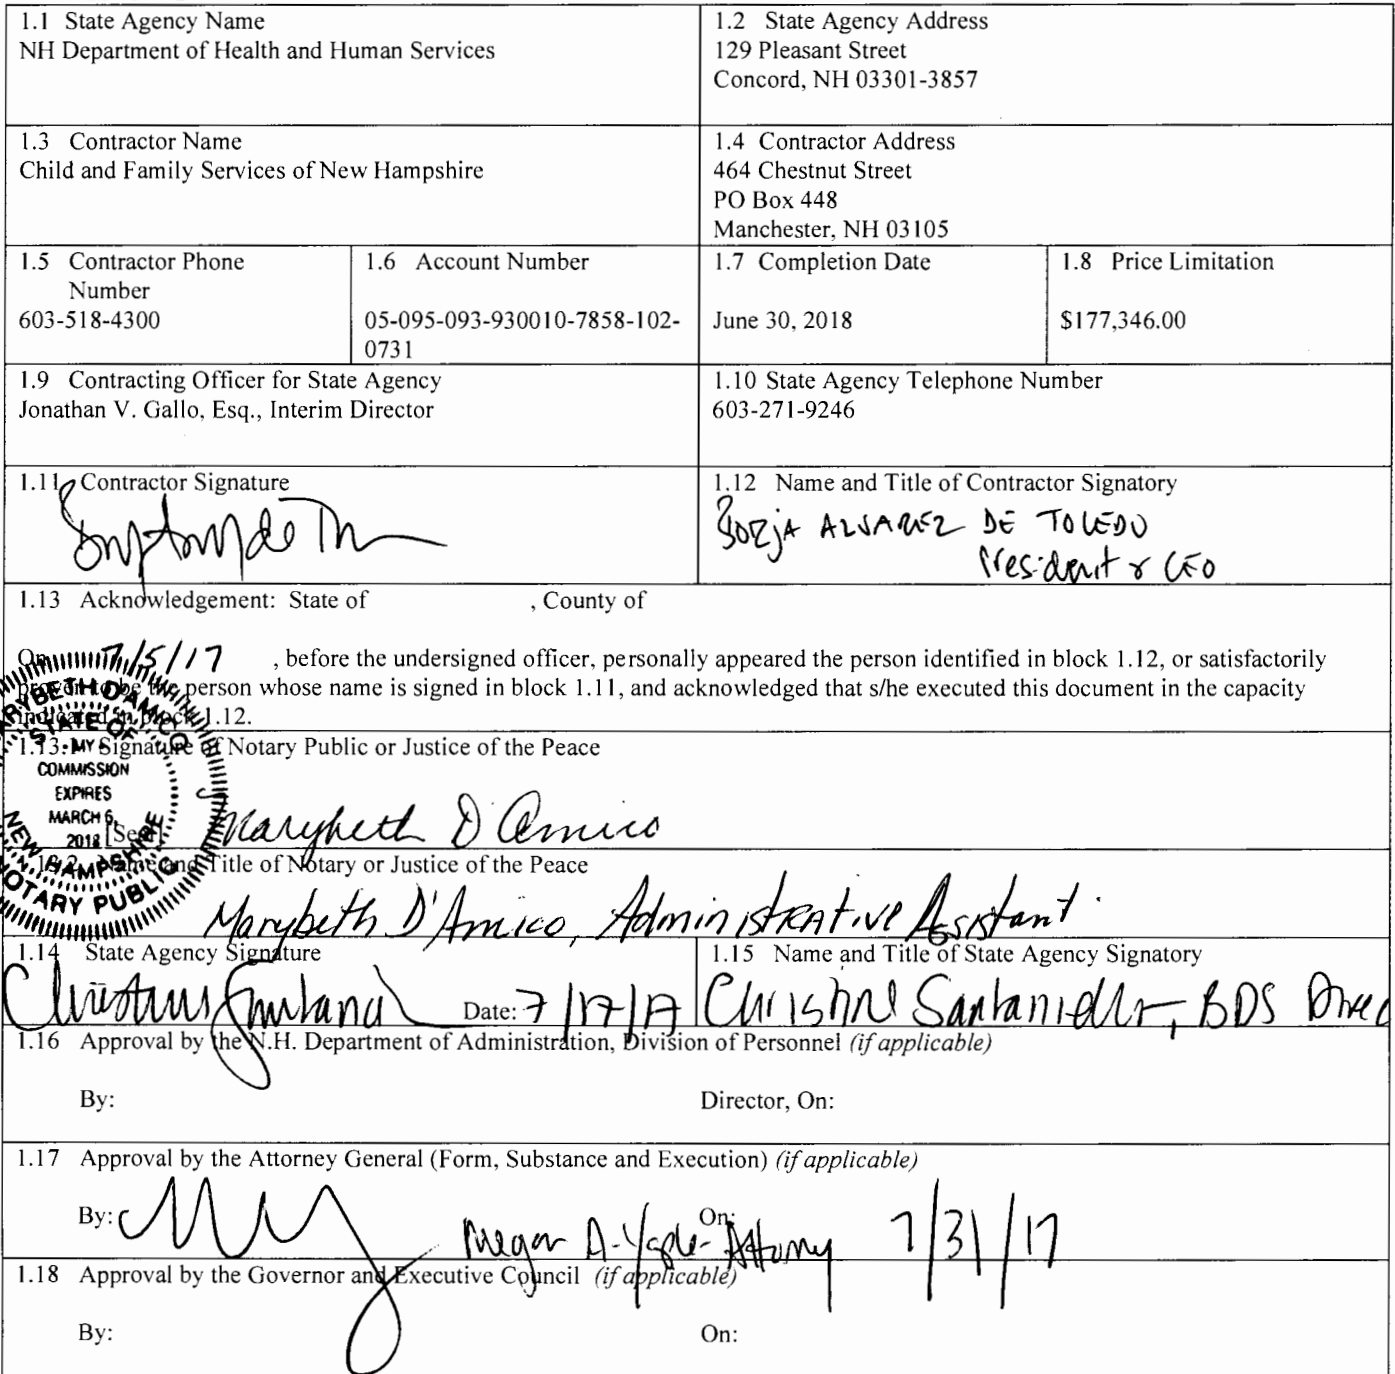 1.1 State Agency Name
NH Department of Health and Human Services
1.2 State Agency Address
129 Pleasant Street
Concord, NH 03301-3857
1.3 Contractor Name
Child and Family Services of New Hampshire
1.4 Contractor Address
464 Chestnut Street
PO Box 448
Manchester, NH 03105
1.5 Contractor Phone
Number
603-518-4300
1.6 Account Number
05-095-093-930010-7858-102-
0731
1.7 Completion Date
June 30, 2018
1.8 Price Limitation
$177,346.00
1.9 Contracting Officer for State Agency
Jonathan V. Gallo, Esq., Interim Director
1.10 State Agency Telephone Number
603-271-9246
1.11 Contractor Signature
1.12 Name and Title of Contractor Signatory
Borja ALVAREZ DE TOLEDO
President & CEO
1.13 Acknowledgement: State of , County of
On 7/5/17 , before the undersigned officer, personally appeared the person identified in block 1.12, or satisfactorily
proven to be the person whose name is signed in block 1.11, and acknowledged that s/he executed this document in the capacity
indicated in block 1.12.
1.13. Signature of Notary Public or Justice of the Peace
MARYBETH D'AMICO
STATE OF
MY
COMMISSION
EXPIRES
MARCH 6,
2018
NEW HAMPSHIRE
NOTARY PUBLIC
[Seal]
Marybeth D'Amico
Name and Title of Notary or Justice of the Peace
Marybeth D'Amico, Administrative Assistant
1.14 State Agency Signature
Date: 7/17/17
1.15 Name and Title of State Agency Signatory
Christine Santaniello, BDS Direc
1.16 Approval by the N.H. Department of Administration, Division of Personnel (if applicable)
By: Director, On:
1.17 Approval by the Attorney General (Form, Substance and Execution) (if applicable)
By: Megan A. Yaple - Attorney On: 7/31/17
1.18 Approval by the Governor and Executive Council (if applicable)
By: On: